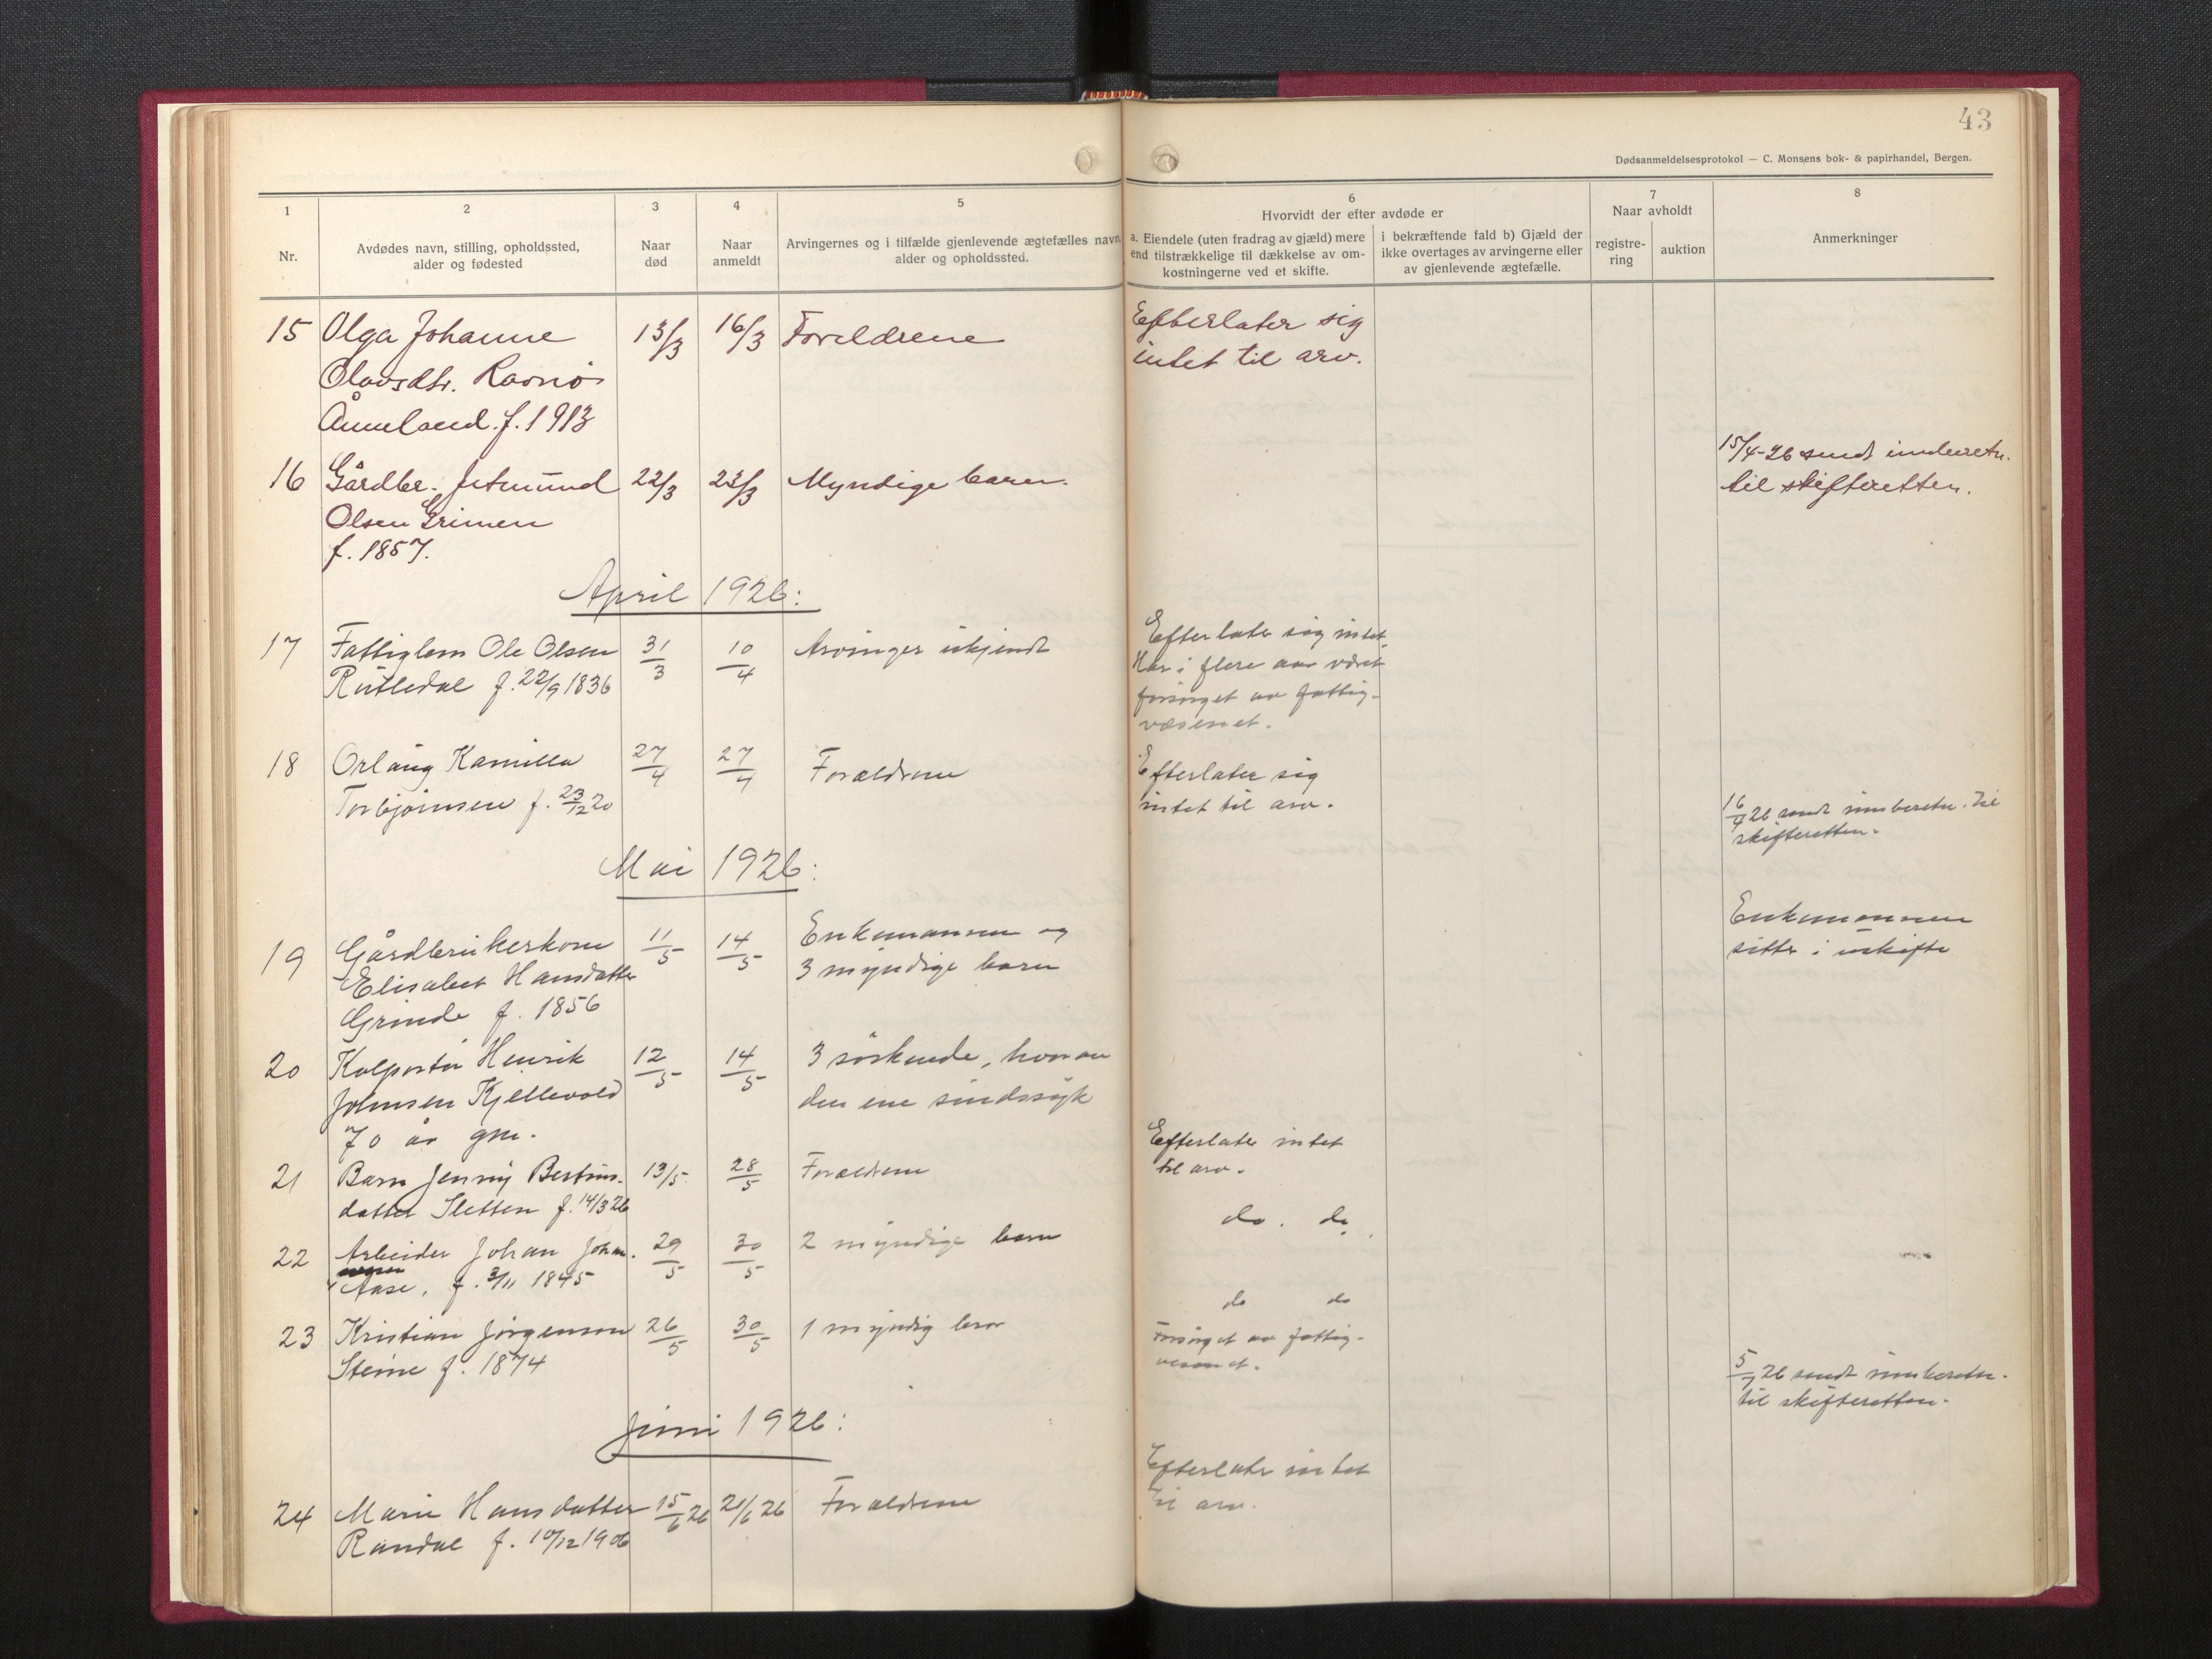 43
Dødsanmeldelsesprotokol — C. Monsens bok- & papirhandel, Bergen.
1
2
3
4
5
6
7
8
Nr.
Avdødes navn, stilling, opholdssted,
alder og fødested
Naar
død
Naar
anmeldt
Arvingernes og i tilfælde gjenlevende ægtefælles navn,
alder og opholdssted.
Hvorvidt der efter avdøde er
a. Eiendele (uten fradrag av gjæld) mere
end tilstrækkelige til dækkelse av om-
kostningerne ved et skifte.
i bekræftende fald b) Gjæld der
ikke overtages av arvingerne eller
av gjenlevende ægtefælle.
Naar avholdt
registre-
ring
auktion
Anmerkninger
15 Olga Johanne 13/3 16/3 Foreldrene Efterlater sig
Olavsdtr. intet til arv.
Åmeland. f. 1913
15/4-26 sendt indberetn.
16 Gårdbr. Jetmund 22/3 23/3 Myndige barn. til skifteretten.
Olsen Grimen
f. 1857.
April 1926:
17 Fattiglem Ole Olsen 31/3 10/4 Arvinger ukjendt Efterlater sig intet.
Rutledal f. 22/9 1836 Har i flere aar været
forsørget av fattig-
væsenet.
18 Orlaug Kamilla 27/4 27/4 Forældrene Efterlater sig
Torbjørnsen f. 23/12 20 intet til arv.
16/4 26 sendt innberetn. til
skifteretten.
Mai 1926:
19 Gårdbrukerkone 11/5 14/5 Enkemannen og Enkemannen
Elisabet Hansdatter 3 myndige barn sitter i uskifte
Grinde f. 1856
20 Kolportør Henrik 12/5 14/5 3 søskende, hvorav
Johnsen Kjellevold den ene sindssyk
70 år gm.
21 Barn Jenny Bertins- 13/5 28/5 Forældrene Efterlater intet
datter Sletten f. 14/3 26 til arv.
22 Arbeider Johan Johan. 29/5 30/5 2 myndige barn do. do.
Aase, f. 3/11 1845
23 Kristian Jørgenson 26/5 30/5 1 myndig bror do do
Steine f. 1874 Forsørget av fattig-
vesenet.
5/7 26 sendt innberetn.
til skifteretten.
Juni 1926:
24 Marie Hansdatter 15/6 26 21/6 26 Forældrene Efterlater intet
Randal f. 10/12 1906 til arv.